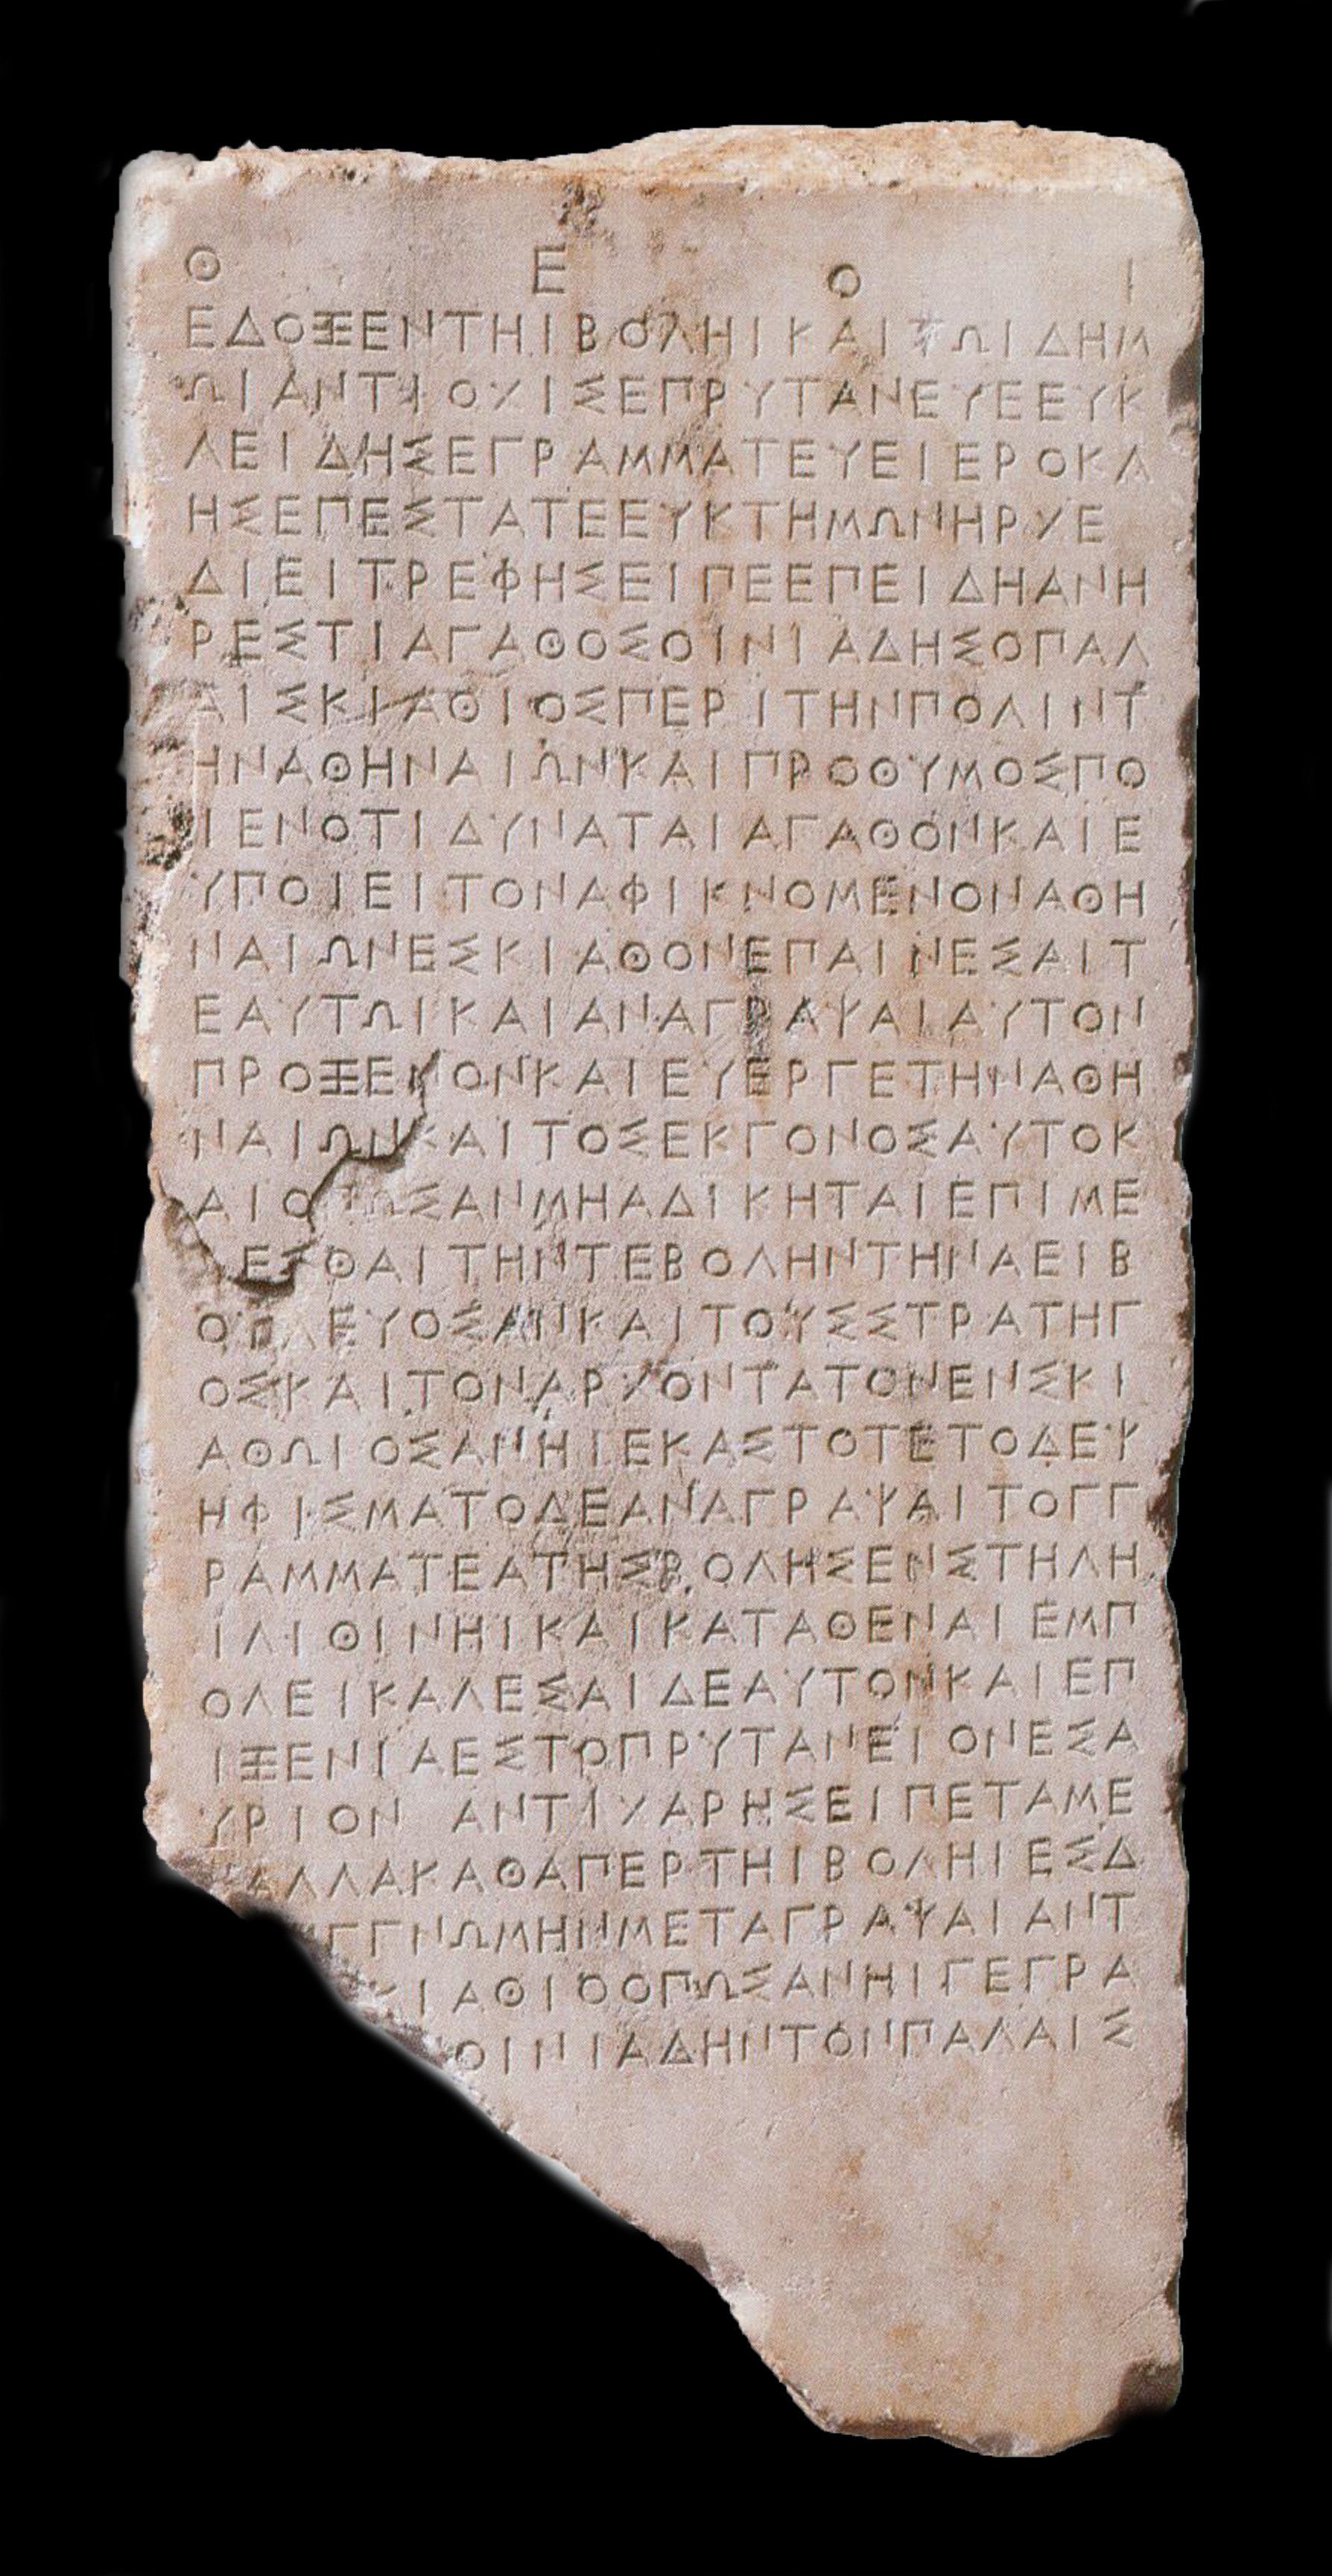 Θ Ε Ο Ι
ΕΔΟΞΕΝΤΗΙΒΟΛΗΙΚΑΙΤΩΙΔΗΜ
ΩΙΑΝΤΙΟΧΙΣΕΠΡΥΤΑΝΕΥΕΕΥΚ
ΛΕΙΔΗΣΕΓΡΑΜΜΑΤΕΥΕΙΕΡΟΚΛ
ΗΣΕΠΕΣΤΑΤΕΕΥΚΤΗΜΩΝΗΡΧΕ
ΔΙΕΙΤΡΕΦΗΣΕΙΠΕΕΠΕΙΔΗΑΝΗ
ΡΕΣΤΙΑΓΑΘΟΣΟΙΝΙΑΔΗΣΟΠΑΛ
ΑΙΣΚΙΑΘΙΟΣΠΕΡΙΤΗΝΠΟΛΙΝΤ
ΗΝΑΘΗΝΑΙΩΝΚΑΙΠΡΟΘΥΜΟΣΠΟ
ΙΕΝΟΤΙΔΥΝΑΤΑΙΑΓΑΘΟΝΚΑΙΕ
ΥΠΟΙΕΙΤΟΝΑΦΙΚΝΟΜΕΝΟΝΑΘΗ
ΝΑΙΩΝΕΣΚΙΑΘΟΝΕΠΑΙΝΕΣΑΙΤ
ΕΑΥΤΩΙΚΑΙΑΝΑΓΡΑΨΑΙΑΥΤΟΝ
ΠΡΟΞΕΝΟΝΚΑΙΕΥΕΡΓΕΤΗΝΑΘΗ
ΝΑΙΩΝΚΑΙΤΟΣΕΚΓΟΝΟΣΑΥΤΟΚ
ΑΙΟΠΩΣΑΝΜΗΑΔΙΚΗΤΑΙΕΠΙΜΕ
ΕΣΘΑΙΤΗΝΤΕΒΟΛΗΝΤΗΝΑΕΙΒ
ΟΛΕΥΟΣΑΝΚΑΙΤΟΥΣΣΤΡΑΤΗΓ
ΟΣΚΑΙΤΟΝΑΡΧΟΝΤΑΤΟΝΕΝΣΚΙ
ΑΘΩΙΟΣΑΝΗΙΕΚΑΣΤΟΤΕΤΟΔΕΨ
ΗΦΙΣΜΑΤΟΔΕΑΝΑΓΡΑΨΑΙΤΟΓΓ
ΡΑΜΜΑΤΕΑΤΗΣΒΟΛΗΣΕΝΣΤΗΛΗ
ΙΛΙΘΙΝΗΙΚΑΙΚΑΤΑΘΕΝΑΙΕΜΠ
ΟΛΕΙΚΑΛΕΣΑΙΔΕΑΥΤΟΝΚΑΙΕΠ
ΙΞΕΝΙΑΕΣΤΟΠΡΥΤΑΝΕΙΟΝΕΣΑ
ΥΡΙΟΝ ΑΝΤΙΧΑΡΗΣΕΙΠΕΤΑΜΕ
ΑΛΛΑΚΑΘΑΠΕΡΤΗΙΒΟΛΗΙΕΣΔ
ΓΓΝΩΜΗΝΜΕΤΑΓΡΑΨΑΙΑΝΤ
ΚΙΑΘΙΟΟΠΩΣΑΝΗΙΓΕΓΡΑ
ΟΙΝΙΑΔΗΝΤΟΝΠΑΛΑΙΣ